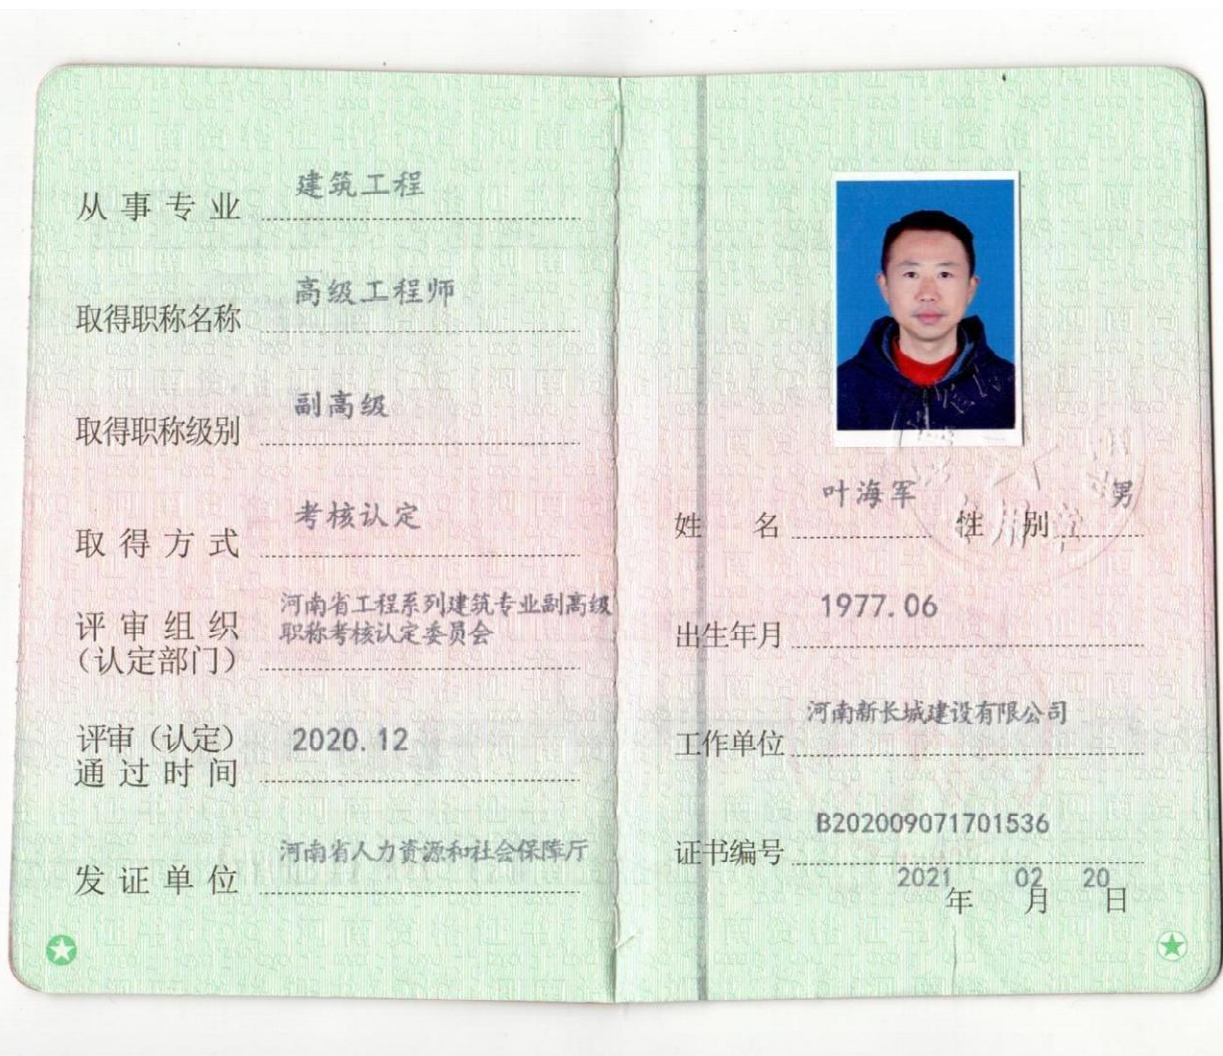 从事专业 建筑工程
取得职称名称 高级工程师
取得职称级别 副高级
取得方式 考核认定
评审组织 河南省工程系列建筑专业副高级
(认定部门) 职称考核认定委员会
评审(认定)
通过时间 2020.12
发证单位 河南省人力资源和社会保障厅
姓名 叶海军 性别 男
出生年月 1977.06
工作单位 河南新长城建设有限公司
证书编号 B202009071701536
2021年02月20日